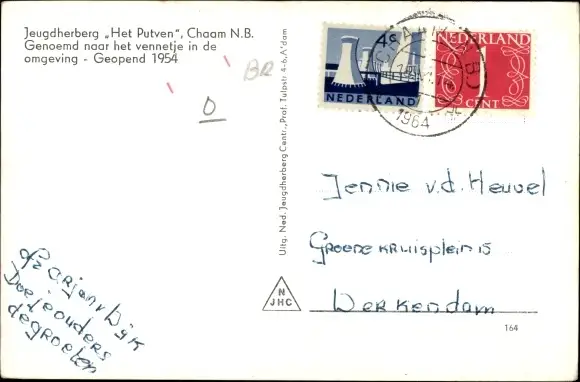 Jeugdherberg „Het Putven", Chaam N.B.
Genoemd naar het vennetje in de
omgeving - Geopend 1954
BR
D
Uitg. Ned. Jeugdherberg Centr., Prof. Tulpstr 4-6, A'dam
4c
NEDERLAND
NEDERLAND
1
CENT
CHAAM (N.B.)
1964
Jennie v.d. Heuvel
Groenekruisplein 15
Werkendam
v. Dijk
de groeten
N
JHC
164